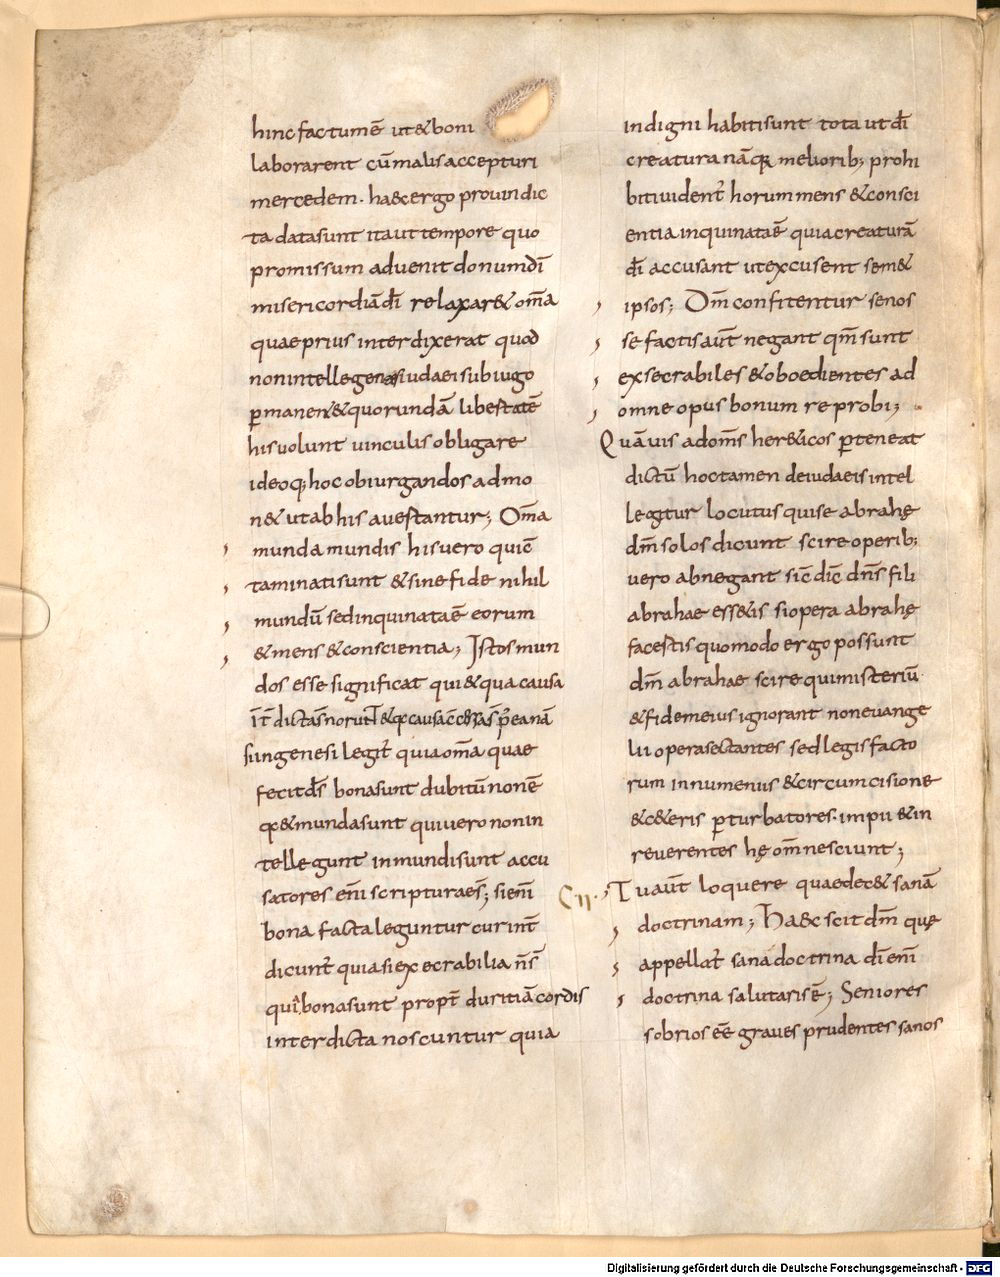 hinc factumē ut&boni
laborarent cū malis accepturi
mercedem. haec ergo pro uindic
ta data sunt ita ut tempore quo
promissum aduenit donum dī
misericordiā dī relaxar& om̄a
quae prius interdixerat quod
non intellegentes iudaei sub iugo
ꝑmanen& & quorundā libertatē
his uolunt uinculis obligare
ideoq; hoc obiurgandos admo
n& ut ab his auertantur; Om̄a
munda mundis his uero qui c̄
taminati sunt & sine fide nihil
mundū sed inquinatae ē eorum
& mens & conscientia; Istos mun
dos esse significat qui & qua causa
dicta
sunt in genesi legit̄ quia om̄a quae
fecit d̄s bona sunt dubiū non ē
q & munda sunt qui uero non in
tellegunt inmundi sunt accu
satores eni scripturae s̄; si eni
bona facta leguntur cur in t̄
dicunt̄ quia si execrabilia n̄ s̄
qui bona sunt propt̄ duritiā cordis
interdicta noscuntur quia
indigni habiti sunt tota ut dī
creatura nāq; meliorib; prohi
biti uident̄ horum mens & consci
entia inquinatae ē quia creaturā
dī accusant ut excusent sem&
ipsos; Dm̄ confitentur se nos
se factis aūt negant qm̄ sunt
exsecrabiles & oboedientes ad
omne opus bonum reprobi;
Quāuis ad om̄s her&icos ꝑteneat
dictū hoc tamen de iudaeis intel
legitur locutus qui se abrahę
dm̄ solos dicunt scire operib;
uero abnegant sic dic̄ dn̄s fili
abrahae ess&is si opera abrahę
facestis quomodo ergo possunt
dm̄ abrahae scire qui misteriū
& fidem eius ignorant non euange
lii opera sectantes sed legis facto
rum in numeniis & circumcisione
& c&eris ꝑturbatores. impii & in
reuerentes hę omnes ciunt;
Cıı. Tu aūt loquere quae dec& sanā
doctrinam; Haec scit dm̄ quę
appellat̄ sana doctrina dī eni
doctrina salutaris ē; Seniores
sobrios eē graues prudentes sanos
Digitalisierung gefördert durch die Deutsche Forschungsgemeinschaft - DFG